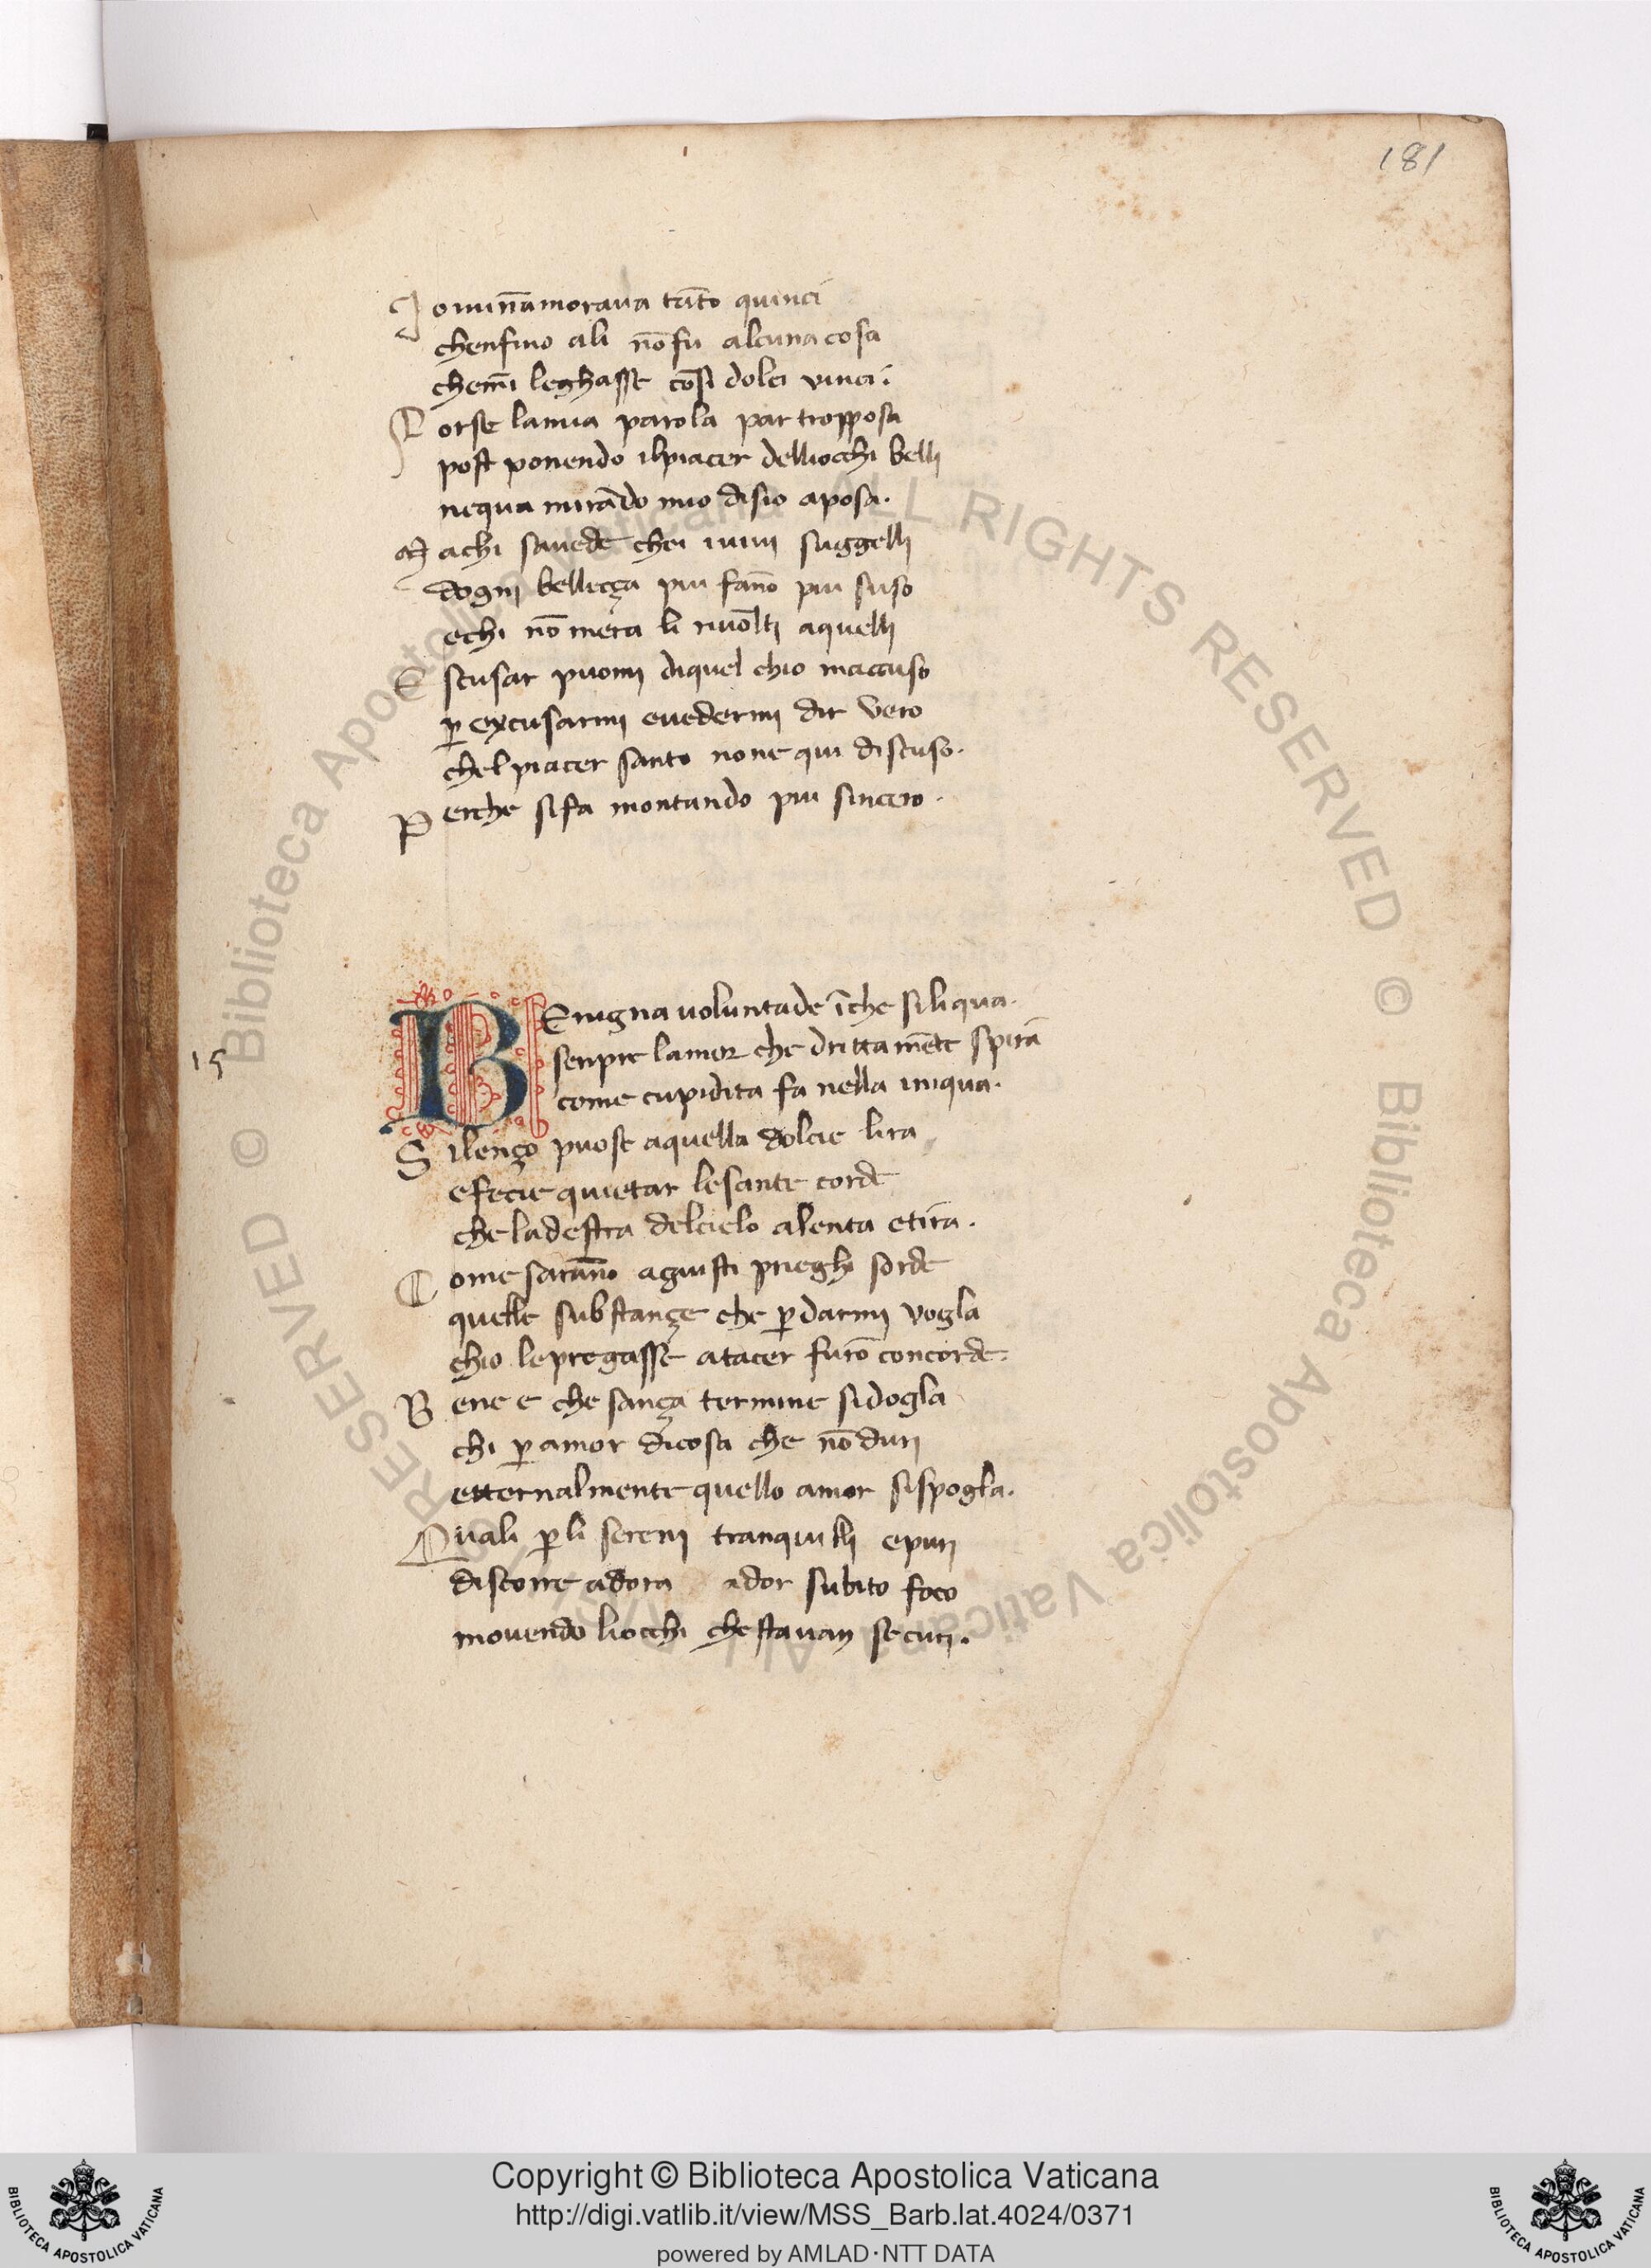 181
Iominamoraua tāto quinci
chenfino ali nōfu alcuna cosa
chemī leghasse cosī dolci uinci.
Forse lamia parola par tropposa
post ponendo ilpiacer delliocchi belli
nequa mirādo mio disio aposa.
Machi sauede chei uiui suggelli
dogni bellecça piu fāno piu suso
echi nō mera li riuolti aquelli
Escusar puomi diquel chio maccuso
p excusarmi euedermi dir Vero
chel piacer santo none qui discuso.
Perche sifa montando piu sincero.
BEnigna uoluntade īche siliqua.
senpre lamor che drittamēte spira
come cupidita fa nella iniqua.
15
Silenço puose aquella dolcie lira
efecie quietar lesante corde
che ladestra delcielo alenta etira.
Come sarāno agiusti prieghi sorde
quelle substançe che pdarmi Vogla
chio lepregasse atacer furō concorde.
Bene e che sança termine sidogla
chi pamor dicosa che nō duri
etternalmente quello amor sispogla.
Quali pli sereni tranquilli epuri
discorre adora ador subito foco
mouendo liocchi chestauan securi.
Copyright © Biblioteca Apostolica Vaticana
http://digi.vatlib.it/view/MSS_Barb.lat.4024/0371
powered by AMLAD·NTT DATA
BIBLIOTECA APOSTOLICA VATICANA
BIBLIOTECA APOSTOLICA VATICANA